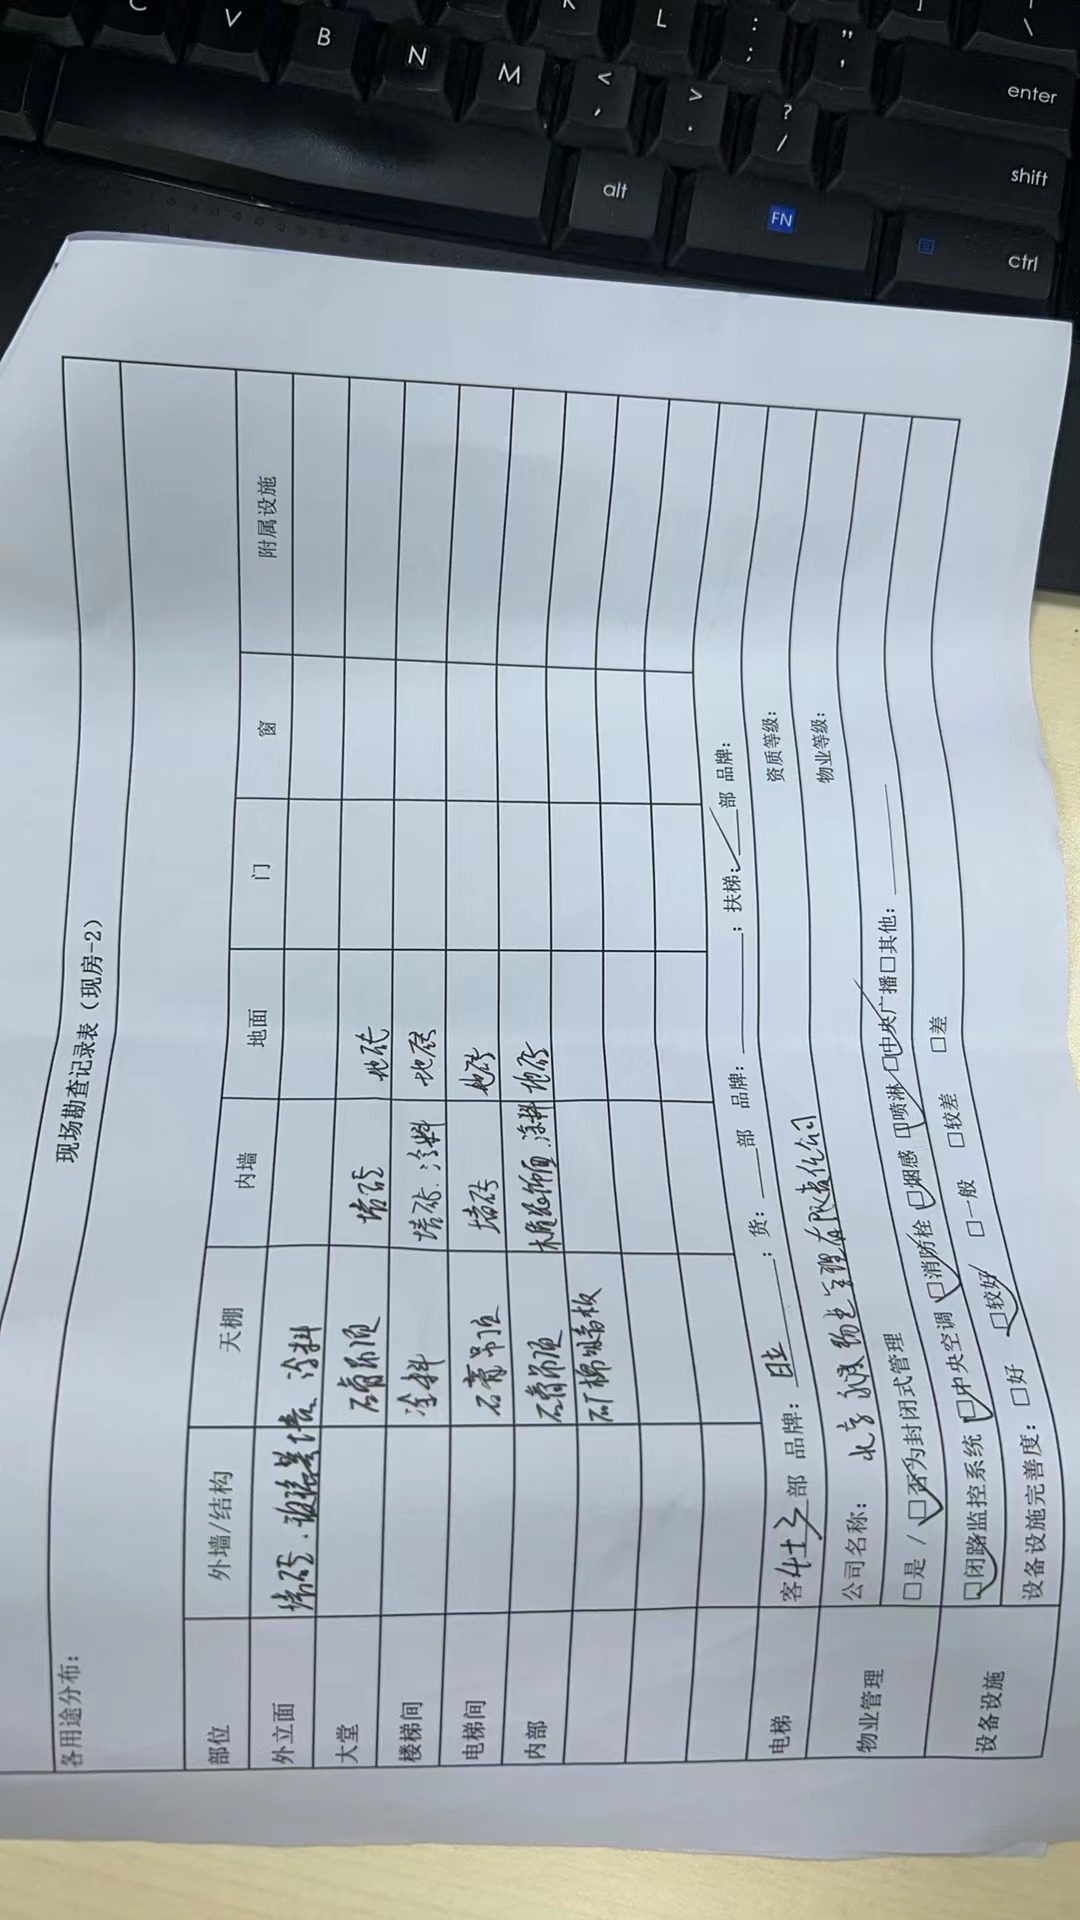 C V B N M K L : ; " ' \
< , > . ? / enter
alt FN shift
ctrl
现场勘查记录表（现房-2）
各用途分布：
部位 外墙/结构 天棚 内墙 地面 门 窗 附属设施
外立面 墙砖、玻璃幕墙、涂料
大堂 石膏吊顶 墙砖 地砖
楼梯间 涂料 墙砖、涂料 地砖
电梯间 石膏吊顶 墙砖 地砖
内部 石膏吊顶 木质饰面、涂料 地砖
矿棉吸音板
电梯 客 部 品牌：日立 ；货： 部 品牌： ；扶梯： 部 品牌：
物业管理 公司名称：北京 物业管理有限责任公司 资质等级：
□是 / □否为封闭式管理 物业等级：
设备设施 □闭路监控系统 □中央空调 □消防栓 □烟感 □喷淋 □中央广播 □其他：
设备设施完善度：□好 □较好 □一般 □较差 □差